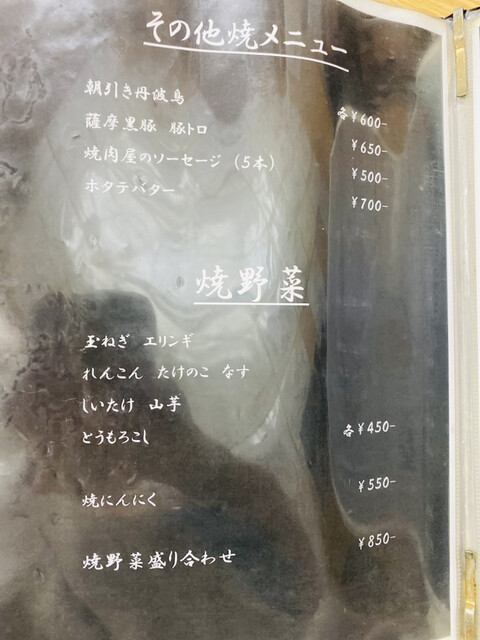 その他焼メニュー
朝引き丹波鳥 各¥600-
薩摩黒豚 豚トロ ¥650-
焼肉屋のソーセージ (5本) ¥500-
ホタテバター ¥700-
焼野菜
玉ねぎ エリンギ
れんこん たけのこ なす
しいたけ 山芋
とうもろこし 各¥450-
焼にんにく ¥550-
焼野菜盛り合わせ ¥850-